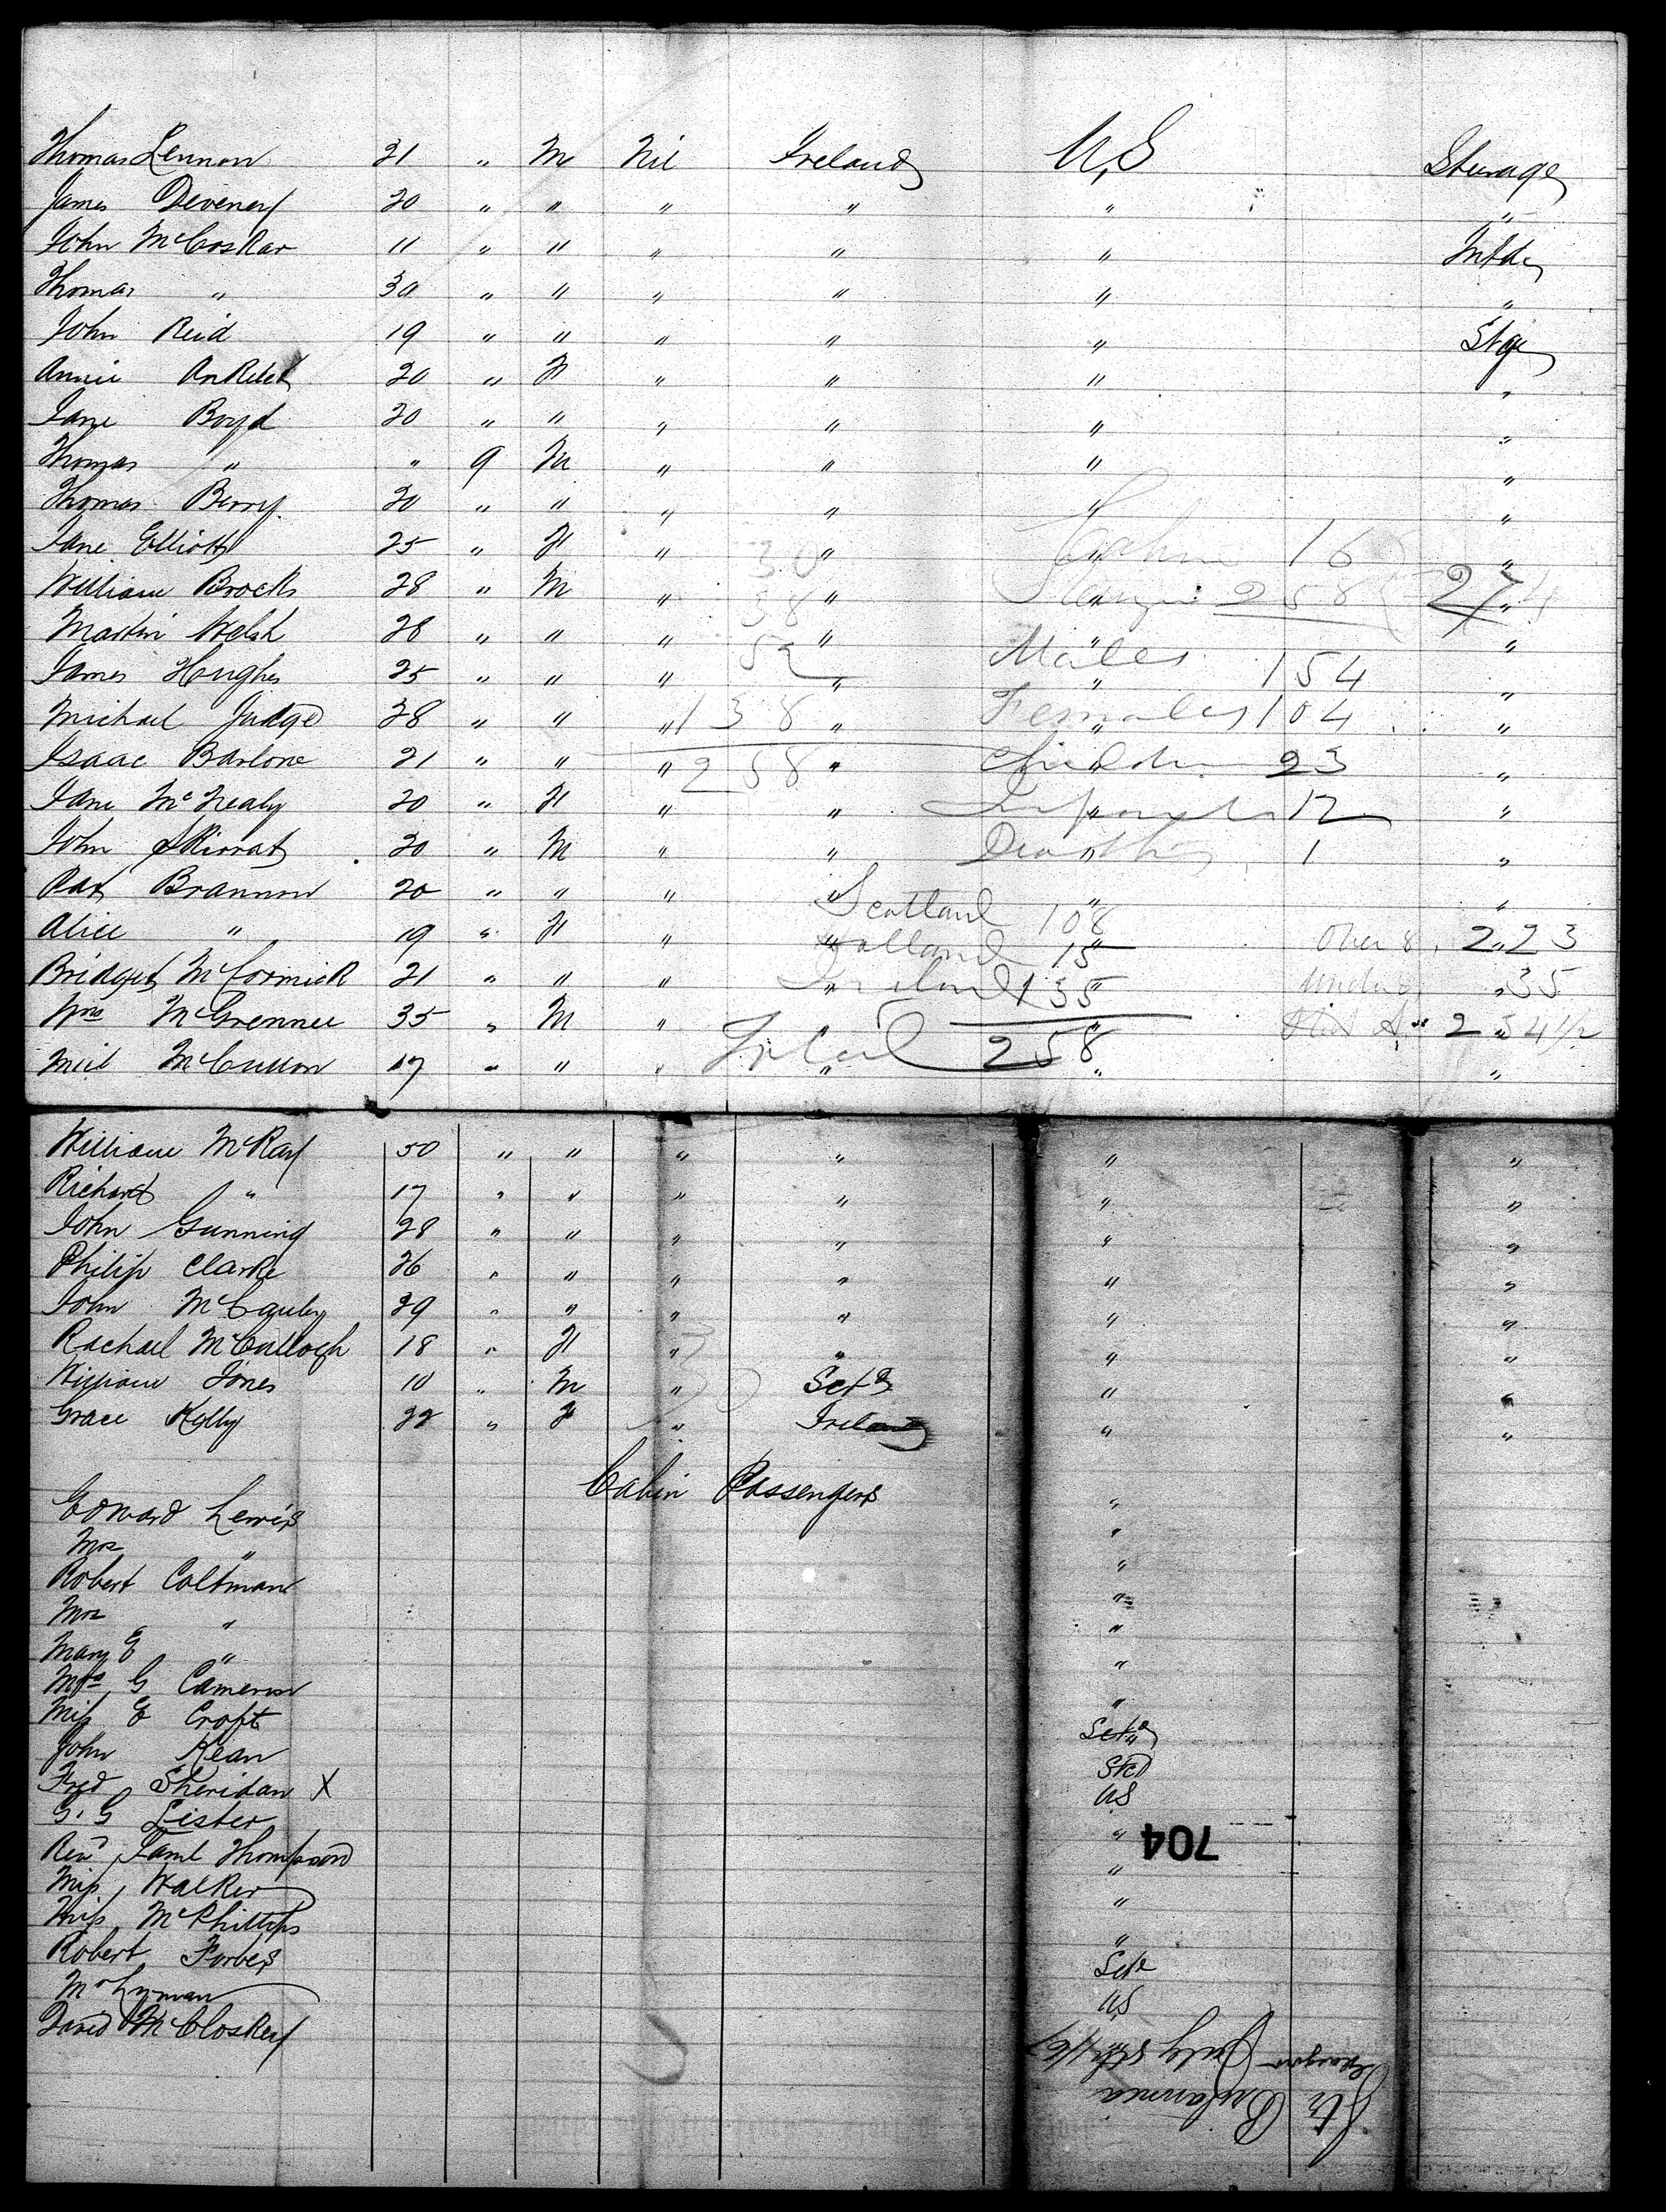 Thomas Lennon 21 " M Nil Ireland U,S Steerage
James Deveney 20 " " " " " "
John McCoskar 11 " " " " " Intde
Thomas " 30 " " " " " "
John Reid 19 " " " " " Stge
Annie 20 " F " " " "
Jane Boyd 20 " " " " " "
Thomas " " 9 M " " " "
Thomas Berry 20 " " " " " "
Jane Elliott 25 " F " 30 " " Cabin 16 "
William Brocks 28 " M " 58 " " Steerage 258 274 "
Martin Welsh 28 " " " " " "
James Hughes 25 " " " 52 " Males " 154 "
Michael Judge 28 " " " 138 " Females " 104 "
Isaac Barlone 21 " " " 258 " Children " 23 "
Jane McNealy 20 " F " " Infants " 12 "
John 20 " M " " Deaths " 1 "
Pat Brannon 20 " " " " Scotland 108 " "
Alice " 19 " F " " Holland 15 " Over 8, 223 "
Bridget McCormick 21 " " " " Ireland 135 " Under 8 35 "
Wm McGrennee 35 " M " " " 234 1/2
Neil McCullon 17 " " " Total 258 " " "
William McKay 50 " " " " " "
Richard " 17 " " " " " "
John Gunning 28 " " " " " "
Philip Clarke 26 " " " " " "
John McCauley 29 " " " " " "
Rachael McCullogh 18 " F " " " "
William Jones 10 " M " Sctd " "
Grace Kelly 22 " F " Ireland " "
Cabin Passengers
Edward Lewis "
Mrs " "
Robert Coltman "
Mrs " "
Mary E " "
Mrs G Cameron "
Miss E Croft "
John Kean Sctd
Fred Sheridan X Std
G. G Lister US
Revd Saml Thompson "
704
Miss Walker "
Miss McPhillips "
Robert Forbes "
Mr Lyman Scte
David McCloskey US
Str
Glasgow July 5th